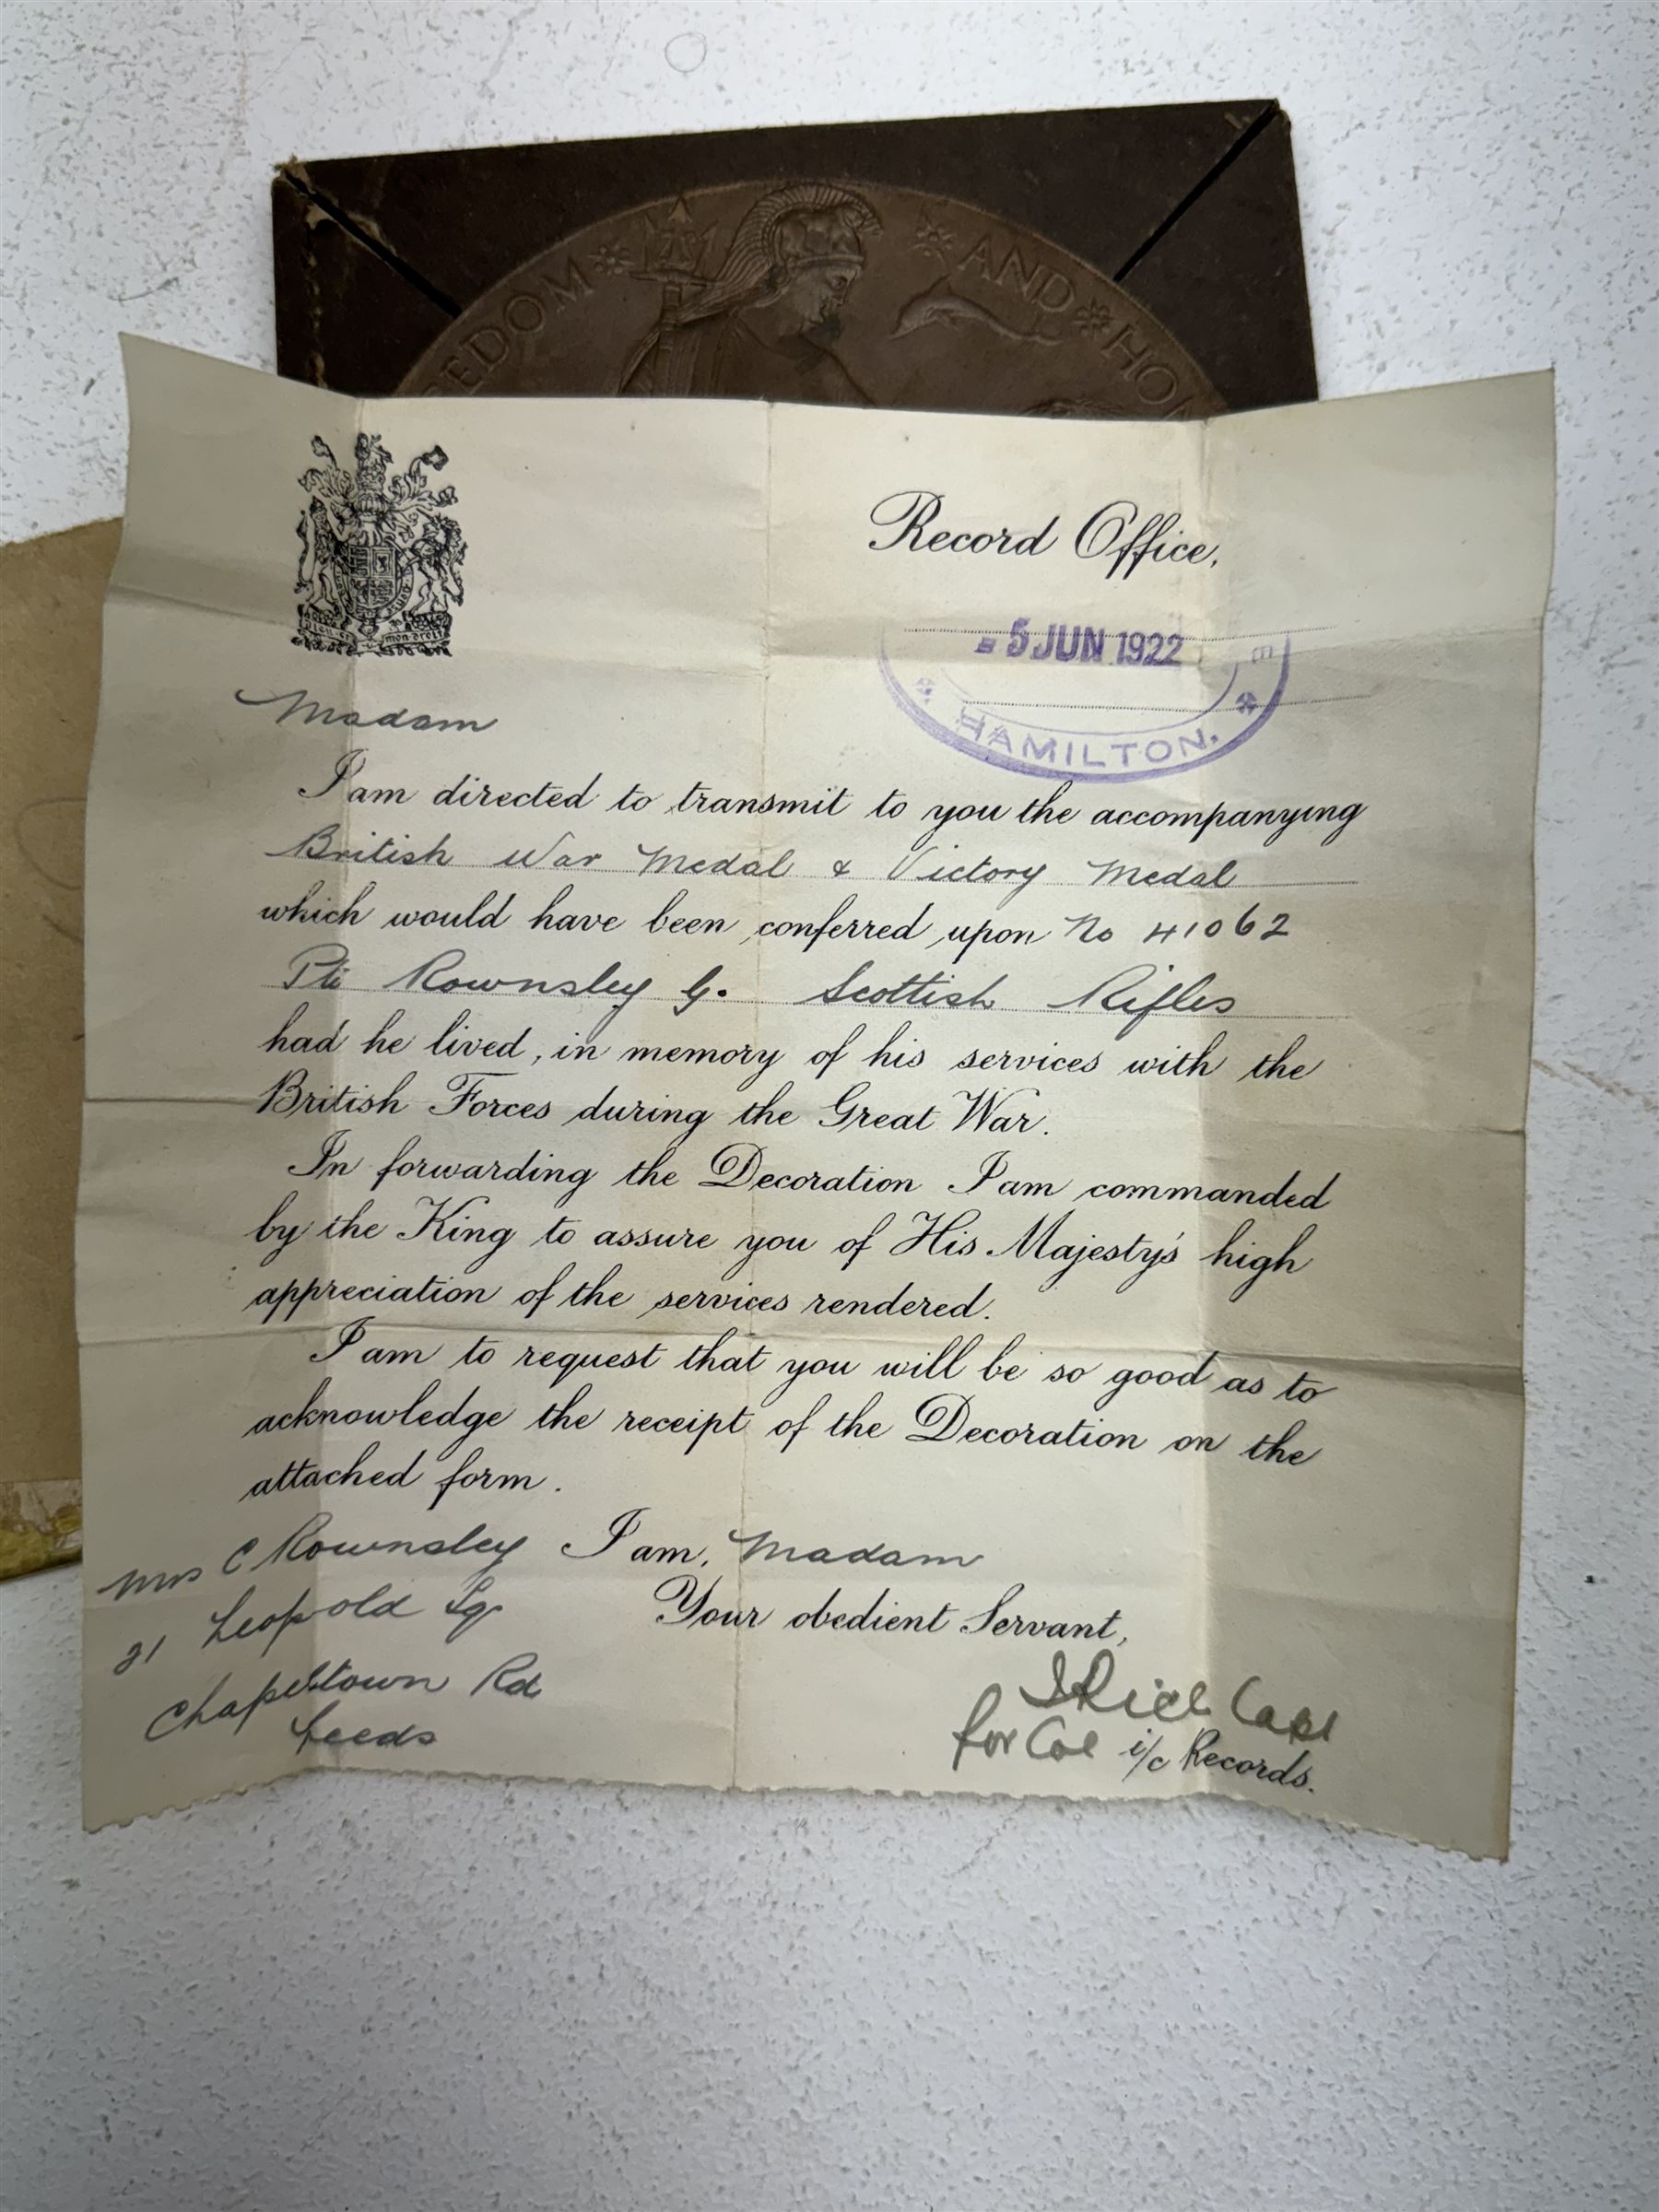 EDOM AND HON
Dieu et mon droit
Record Office,
5 JUN 1922
E
HAMILTON.
Madam
I am directed to transmit to you the accompanying
British War Medal & Victory Medal
which would have been conferred upon No 41062
Pte Rownsley G. Scottish Rifles
had he lived, in memory of his services with the
British Forces during the Great War.
In forwarding the Decoration I am commanded
by the King to assure you of His Majesty's high
appreciation of the services rendered.
I am to request that you will be so good as to
acknowledge the receipt of the Decoration on the
attached form.
Mrs C Rownsley I am, Madam
21 Leopold Sq Your obedient Servant,
Chapeltown Rd
Leeds
Capt
for Col i/c Records.